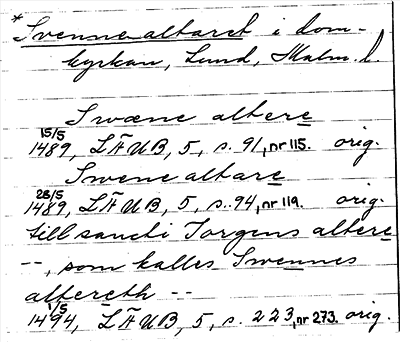 *Svenne-altaret i dom-
kyrkan, Lund, Malm. l.
Swæne altere
15/5
1489, LÄUB, 5, s. 91, nr 115. orig.
Swene altare
28/5
1489, LÄUB, 5, s. 94, nr 119. orig.
till sancti Jorgens altere
--, som kalles Swennes
altereth --
1/5
1494, LÄUB, 5, s. 223, nr 273. orig.